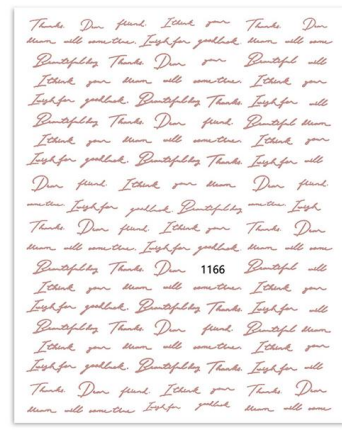 Thanks. Dear friend. I think your Thanks. Dear
Mum will come true. I wish for goodluck. Mum will come
Beautiful day Thanks. Dear your Beautiful will
I think your Mum will come true. I think your
I wish for goodluck. Beautiful day Thanks. I wish for will
Beautiful day Thanks. Dear friend. Beautiful Mum
I think your Mum will come true. I think your
I wish for goodluck. Beautiful day Thanks. I wish for will
Dear friend. I think your Mum Dear friend.
come true. I wish for goodluck. Beautiful day come true. I wish
Thanks. Dear friend. I think your Thanks. Dear
Mum will come true. I wish for goodluck. Mum will come true.
Beautiful day Thanks. Dear 1166 Beautiful will
I think your Mum will come true. I think your
I wish for goodluck. Beautiful day Thanks. I wish for will
Beautiful day Thanks. Dear friend. Beautiful Mum
I think your Mum will come true. I think your
I wish for goodluck. Beautiful day Thanks. I wish for will
Thanks. Dear friend. I think your Thanks. Dear
Mum will come true. I wish for goodluck. Mum will come true.